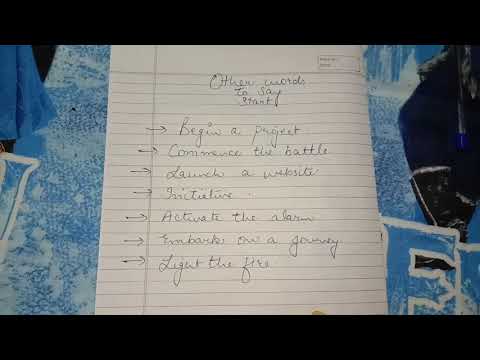 Other words
to say
start
→ Begin a project
→ Commence the battle
→ Launch a website
→ Initiative.
→ Activate the alarm
→ Embark on a journey
→ Light the fire.